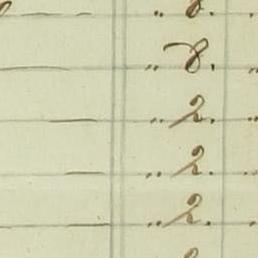 „ 8.
„ 8.
„ 2.
„ 2.
„ 2.